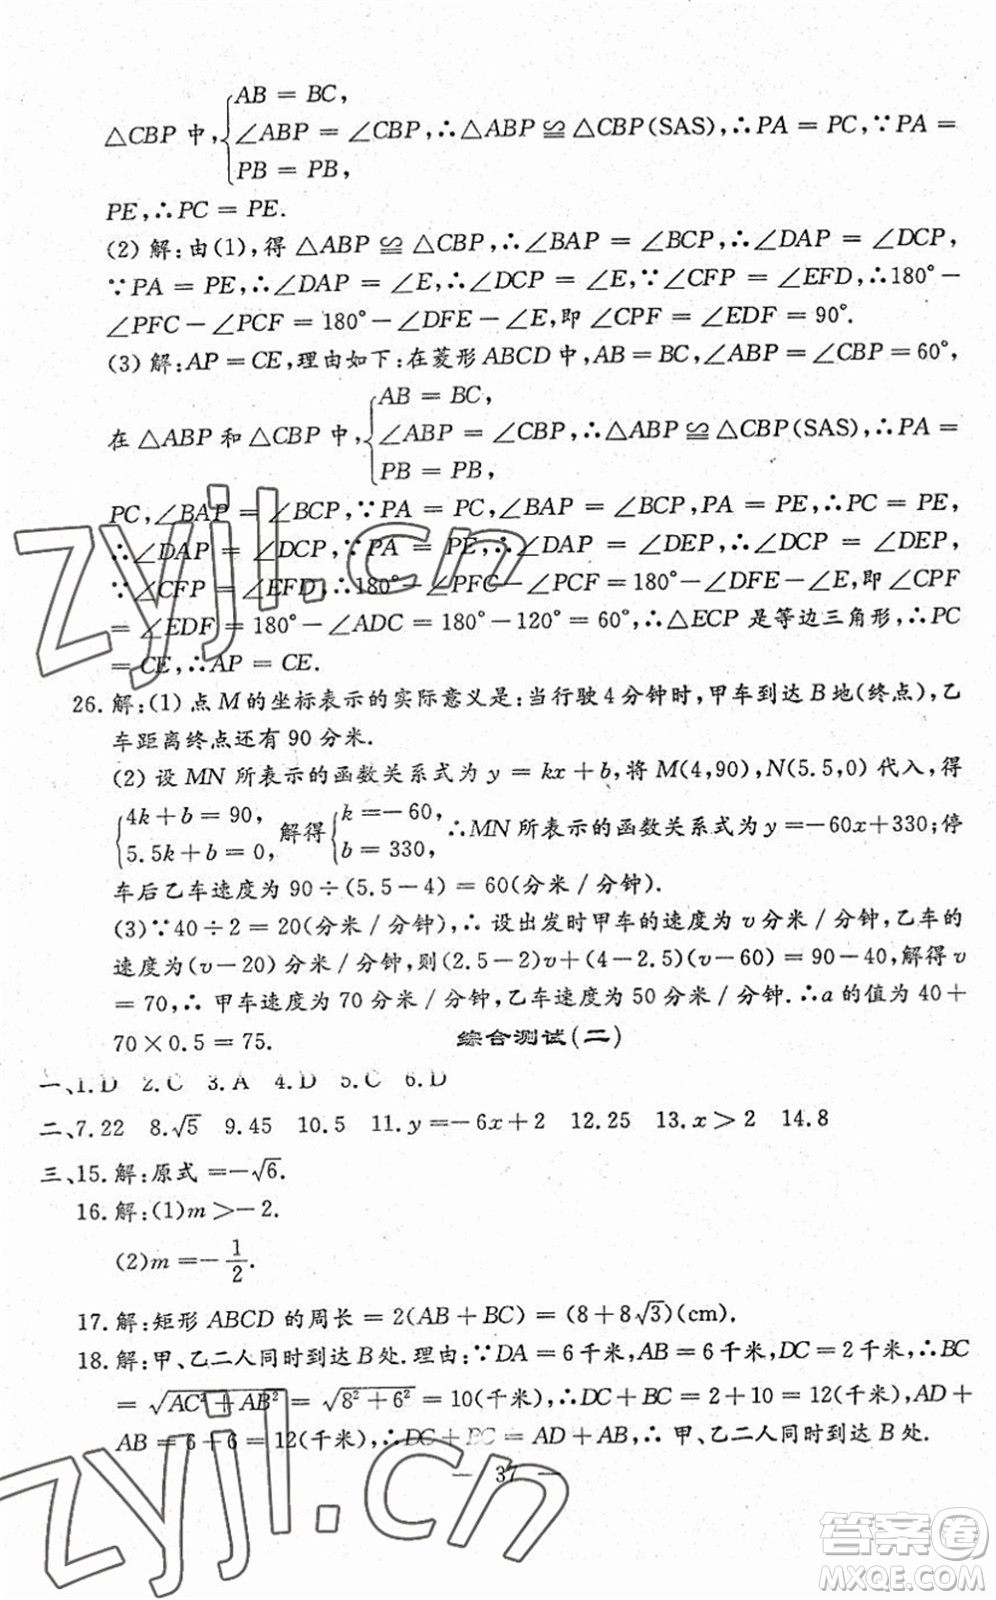 △CBP 中,{AB = BC,
∠ABP = ∠CBP,∴△ABP ≌ △CBP(SAS),∴PA = PC,∵PA =
PB = PB,
PE,∴PC = PE.
(2) 解:由(1),得 △ABP ≌ △CBP,∴∠BAP = ∠BCP,∴∠DAP = ∠DCP,
∵PA = PE,∴∠DAP = ∠E,∴∠DCP = ∠E,∵∠CFP = ∠EFD,∴180°−
∠PFC−∠PCF = 180°−∠DFE−∠E,即 ∠CPF = ∠EDF = 90°.
(3) 解:AP = CE,理由如下:在菱形 ABCD 中,AB = BC,∠ABP=∠CBP=60°,
在 △ABP 和 △CBP 中,{AB = BC,
∠ABP = ∠CBP,∴△ABP ≌ △CBP(SAS),∴PA =
PB = PB,
PC,∠BAP = ∠BCP,∵PA = PC,∠BAP = ∠BCP,PA = PE,∴PC = PE,
∴∠DAP = ∠DCP,∵PA = PE,∴∠DAP = ∠DEP,∴∠DCP = ∠DEP,
∵∠CFP = ∠EFD,∴180°−∠PFC−∠PCF = 180°−∠DFE−∠E,即∠CPF
= ∠EDF = 180°−∠ADC = 180°−120° = 60°,∴△ECP 是等边三角形,∴PC
= CE,∴AP = CE.
26. 解:(1) 点 M 的坐标表示的实际意义是:当行驶 4 分钟时,甲车到达 B 地(终点),乙
车距离终点还有 90 分米.
(2) 设 MN 所表示的函数关系式为 y = kx + b,将 M(4,90),N(5.5,0) 代入,得
{4k + b = 90, 5.5k + b = 0, 解得{k = −60, b = 330, ∴MN 所表示的函数关系式为 y=−60x+330;停
车后乙车速度为 90 ÷ (5.5 − 4) = 60(分米 / 分钟).
(3)∵40 ÷ 2 = 20(分米 / 分钟),∴ 设出发时甲车的速度为 v 分米 / 分钟,乙车的
速度为(v − 20) 分米 / 分钟,则(2.5−2)v+(4−2.5)(v−60) = 90−40,解得 v
= 70,∴ 甲车速度为 70 分米 / 分钟,乙车速度为 50 分米 / 分钟.∴a 的值为 40 +
70 × 0.5 = 75.
综合测试(二)
一、1. D 2. C 3. A 4. D 5. C 6. D
二、7. 22 8. √5 9. 45 10. 5 11. y =−6x + 2 12. 25 13. x > 2 14. 8
三、15. 解:原式 =−√6.
16. 解:(1)m >− 2.
(2)m =− 1/2.
17. 解:矩形 ABCD 的周长 = 2(AB + BC) = (8 + 8√3)(cm).
18. 解:甲、乙二人同时到达 B 处.理由:∵DA = 6 千米,AB = 6 千米,DC = 2 千米,∴BC
= √AC² + AB² = √8² + 6² = 10(千米),∴DC + BC = 2 + 10 = 12(千米),AD +
AB = 6 + 6 = 12(千米),∴DC + BC = AD + AB,∴ 甲、乙二人同时到达 B 处.
— 37 —
zyjl.cn
zyjl.cn
答案圈
MXQE.COM